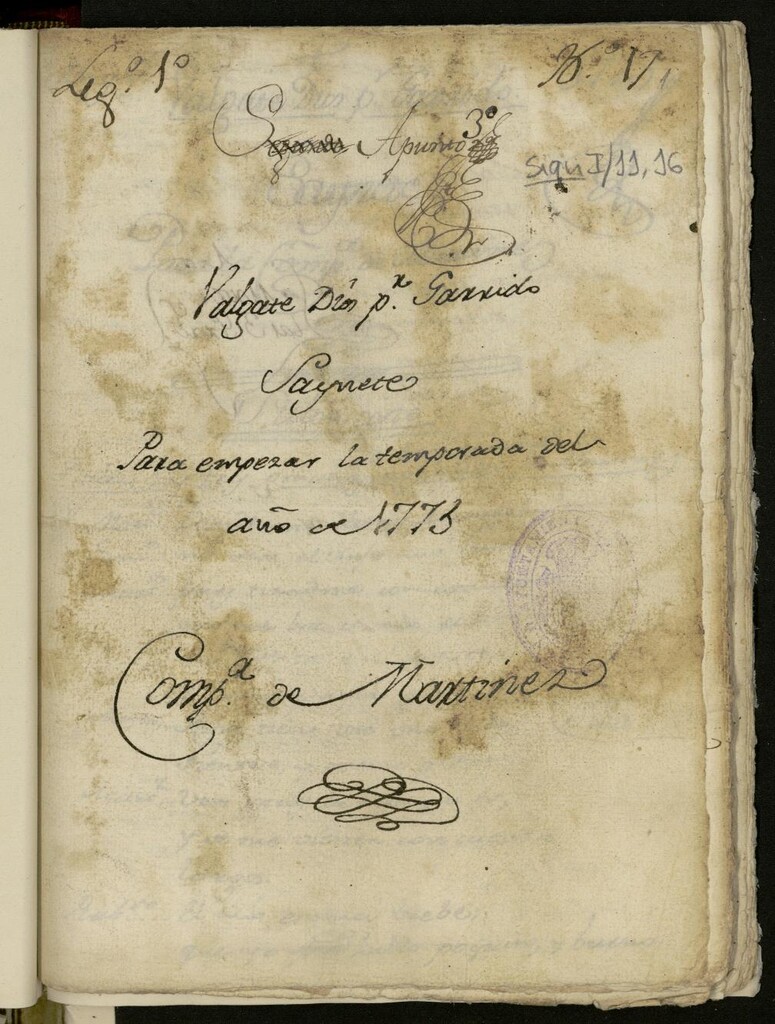 Leg.º 1º
N.º 17
3º
Apunto
Sign I/11, 16
Valgate Dios p.r Garrido
Saynete
Para empezar la temporada del
año de 1773
Comp.a de Martinez